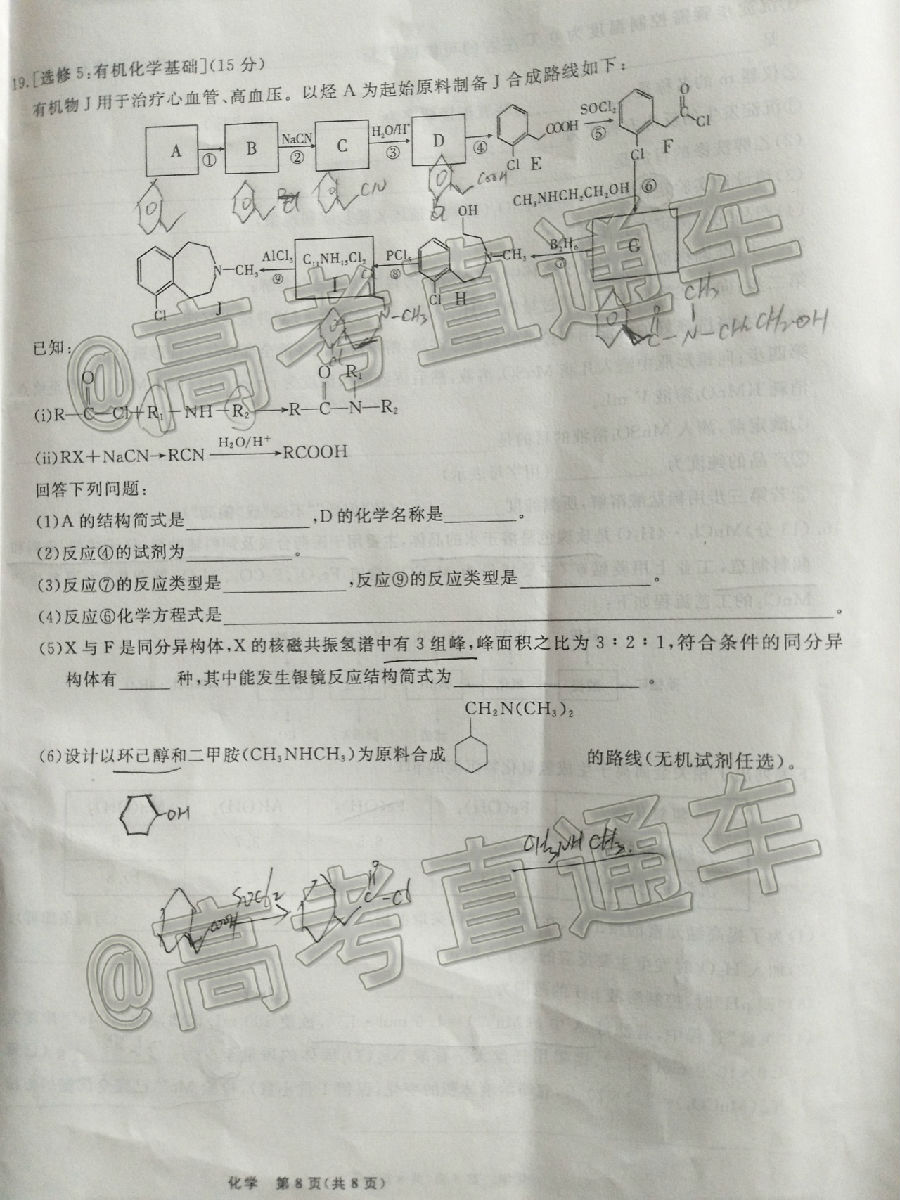 19.[选修5:有机化学基础](15分)
有机物J用于治疗心血管、高血压。以烃A为起始原料制备J合成路线如下:
A ① B NaCN ② C H₂O/H⁺ ③ D ④ COOH Cl E SOCl₂ ⑤ O Cl Cl F
CN COOH Cl
CH₃NHCH₂CH₂OH ⑥
N—CH₃ Cl J AlCl₃ ⑨ I PCl₅ ⑧ OH N—CH₃ Cl H B₂H₆ ⑦ G
N-CH₃ O C-N-CH₂CH₂-OH CH₃
已知:
(i)R—C(=O)—Cl+R₁—NH—R₂→R—C(=O)—N(R₁)—R₂
(ii)RX+NaCN→RCN H₂O/H⁺ →RCOOH
回答下列问题:
(1)A的结构简式是____________,D的化学名称是________。
(2)反应④的试剂为____________。
(3)反应⑦的反应类型是______________,反应⑨的反应类型是____________。
(4)反应⑥化学方程式是____________。
(5)X与F是同分异构体,X的核磁共振氢谱中有3组峰,峰面积之比为3:2:1,符合条件的同分异
构体有_____种,其中能发生银镜反应结构简式为________________。
CH₂N(CH₃)₂
(6)设计以环己醇和二甲胺(CH₃NHCH₃)为原料合成 的路线(无机试剂任选)。
-OH
CH₃NHCH₃
COOH SOCl₂ O C-Cl
@高考直通车
@高考直通车
化学 第8页(共8页)